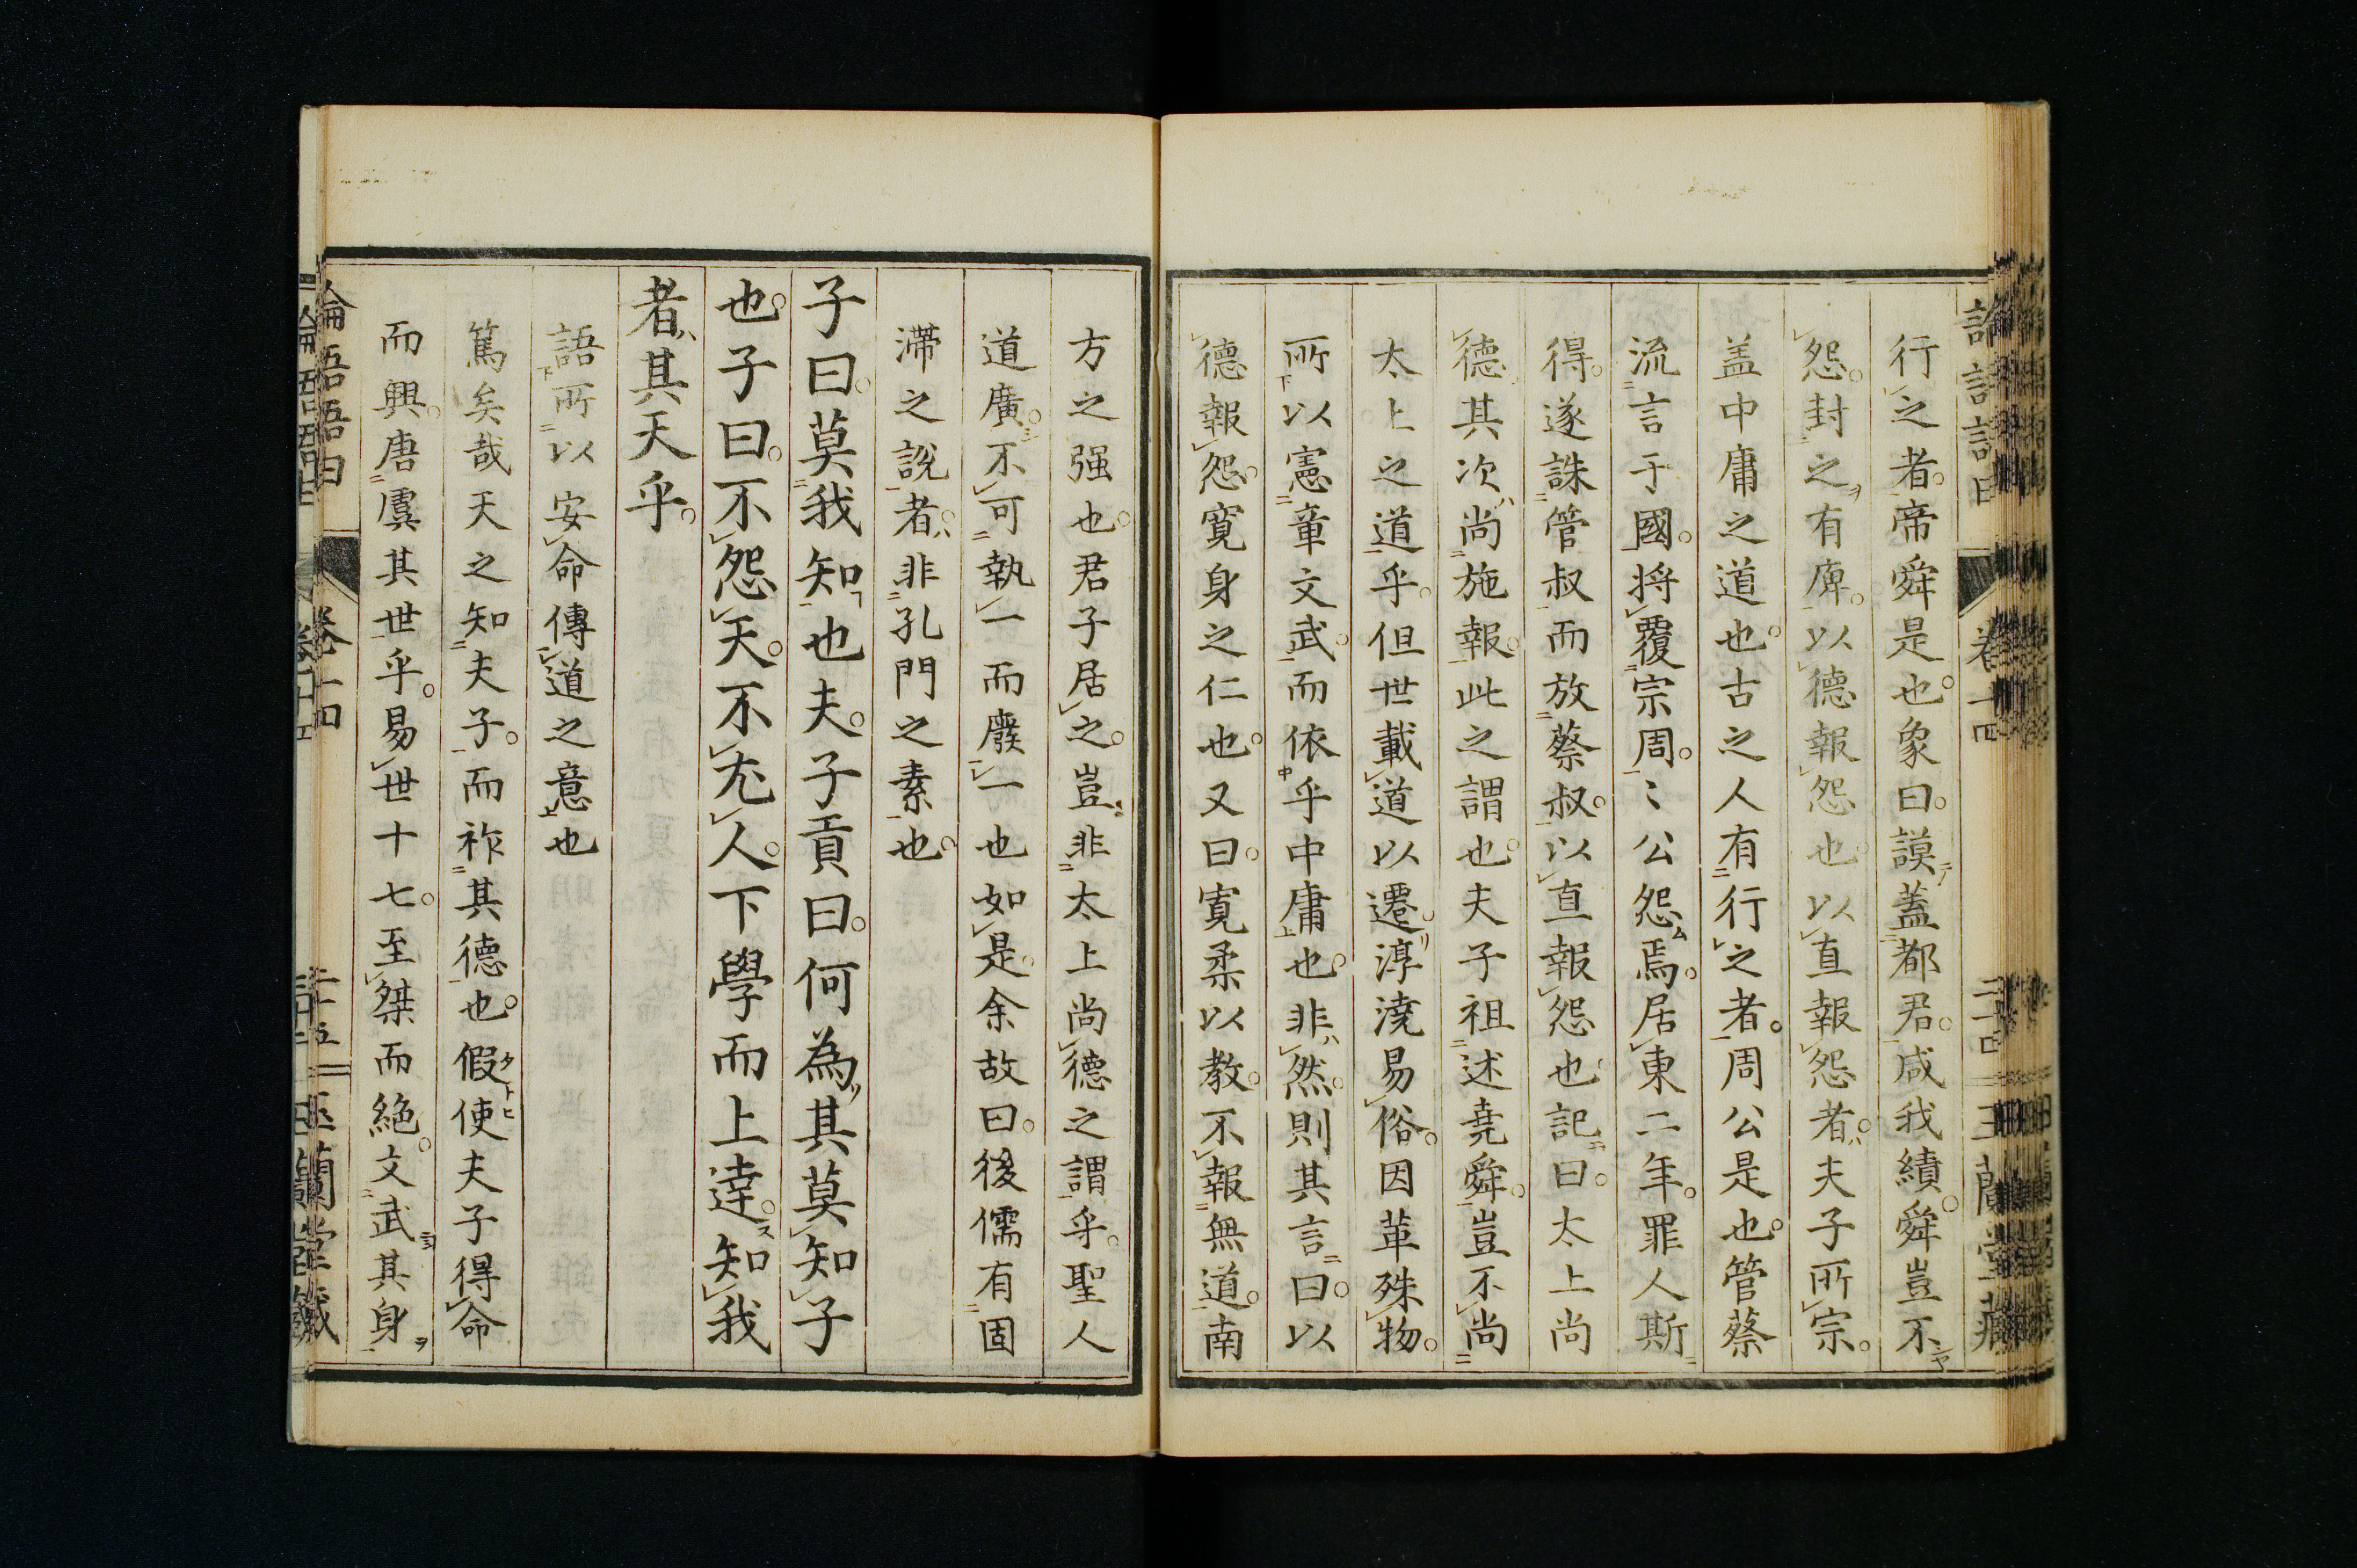 行之者帝舜是也象曰謨蓋都君咸我績舜豈不
怨封之有庳以德報怨也以直報怨者夫子所宗
盖中庸之道也古之人有行之者周公是也管蔡
流言于國将覆宗周〻公怨焉居東二年罪人斯
得遂誅管叔而放蔡叔以直報怨也記曰太上尚
德其次尚施報此之謂也夫子祖述堯舜豈不尚
太上之道乎但世載道以遷淳澆易俗因革殊物
所以憲章文武而依乎中庸也非然則其言曰以
德報怨寛身之仁也又曰寛柔以教不報無道南
方之强也君子居之豈非太上尚德之謂乎聖人
道廣不可執一而廢一也如是余故曰後儒有固
滯之說者非孔門之素也
子曰莫我知也夫子貢曰何為其莫知子
也子曰不怨天不尤人下學而上達知我
者其天乎
語所以安命傳道之意也
篤矣哉天之知夫子而祚其德也假使夫子得命
而興唐虞其世乎易世十七至桀而絶文武其身
論語語由 卷十四